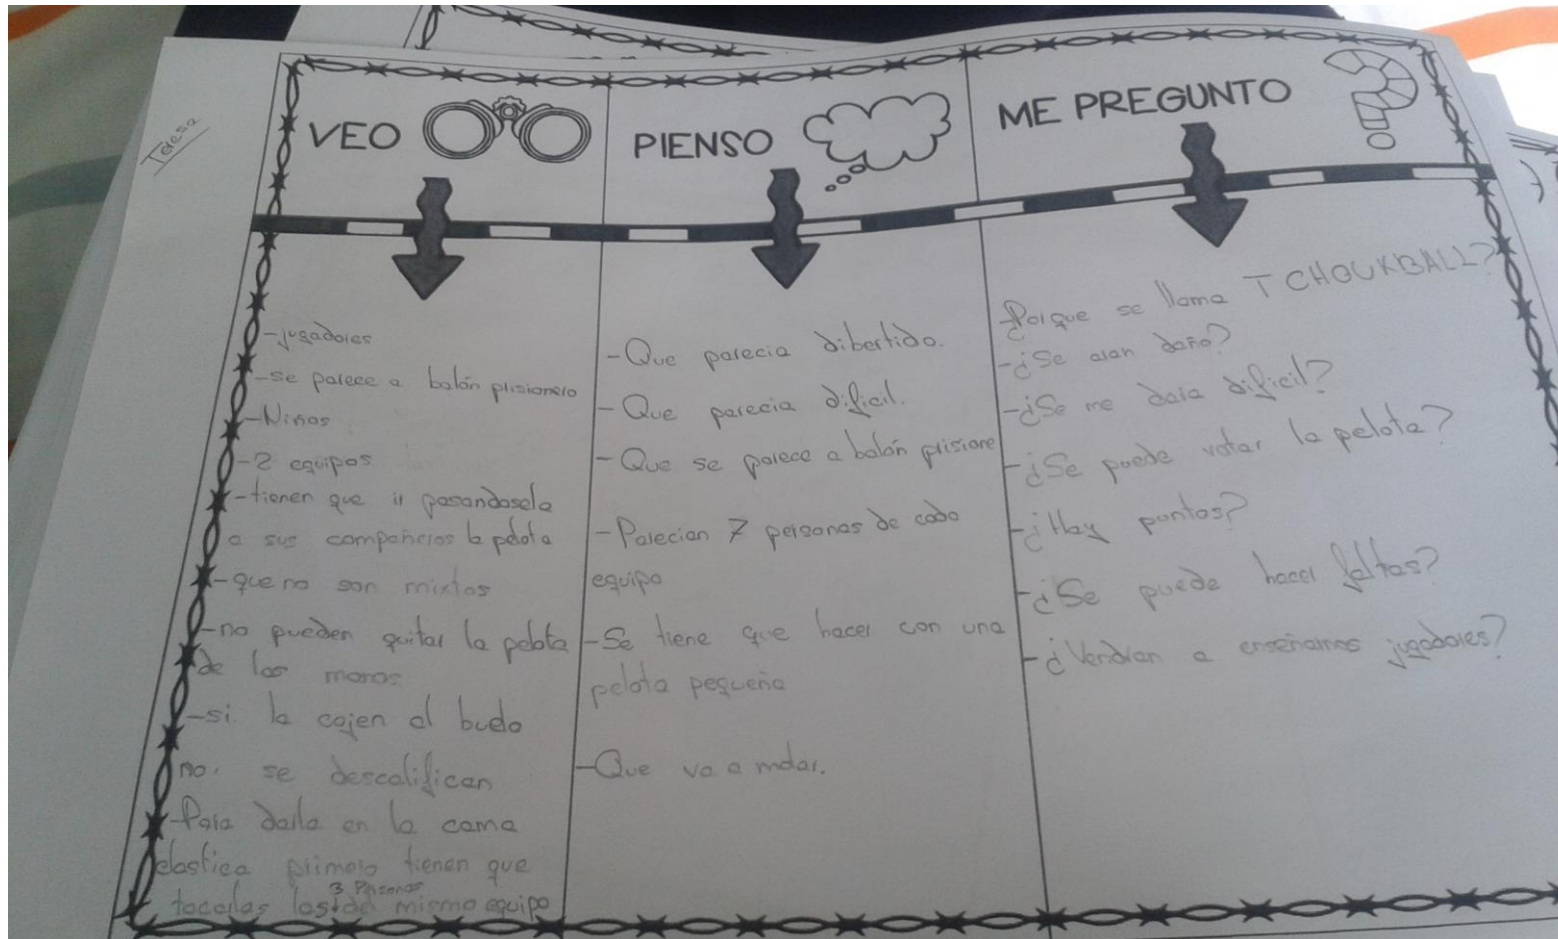 Teresa
VEO
-jugadores
-se parece a balón prisionero
-Niños
-2 equipos
-tienen que ir pasandosela
a sus compañeros la pelota
-que no son mixtos
-no pueden quitar la pelota
de las manos
-si la cojen al buelo
no. se descalifican
-Para darla en la cama
elastica primero tienen que
tocarlas las 3 Personas del mismo equipo
PIENSO
-Que parecia dibertido.
-Que parecia dificil.
-Que se parece a balón prisione
-Parecian 7 personas de cada
equipo
-Se tiene que hacer con una
pelota pequeña
-Que va a molar.
ME PREGUNTO
-¿Porque se llama TCHOUKBALL?
-¿Se aran daño?
-¿Se me dara dificil?
-¿Se puede votar la pelota?
-¿Hay puntos?
-¿Se puede hacer faltas?
-¿Vendran a enseñarnos jugadores?